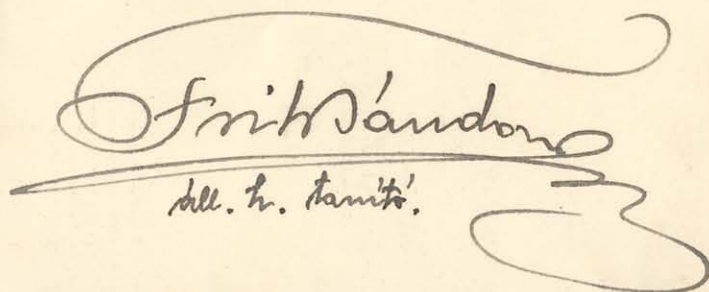 Frits Sándor
áll. h. tanító.